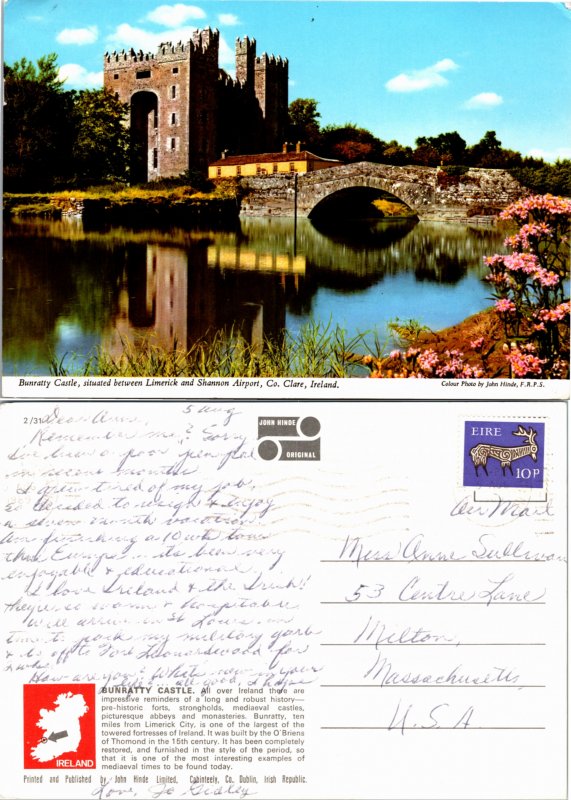 Bunratty Castle, situated between Limerick and Shannon Airport, Co. Clare, Ireland.
Colour Photo by John Hinde, F.R.P.S.
2/31
Dear Ann, 5 Aug
Remember me? Sorry
I've been a poor pen pal
in recent months
I grew tired of my job,
so decided to resign & enjoy
a seven month vacation.
Am finishing a 10 wk tour
thru Europe... its been very
enjoyable & educational.
I love Ireland & the Irish!
They're so warm & hospitable
Will arrive in St Louis in
time to pack my military garb
& be off to Fort Leonardwood for
How are you? What's new in your
all good, I hope
JOHN HINDE
ORIGINAL
EIRE
10P
Air Mail
Miss Anne Sullivan
53 Centre Lane
Milton,
Massachusetts,
U.S.A
IRELAND
BUNRATTY CASTLE. All over Ireland there are
impressive reminders of a long and robust history—
pre-historic forts, strongholds, mediaeval castles,
picturesque abbeys and monasteries. Bunratty, ten
miles from Limerick City, is one of the largest of the
towered fortresses of Ireland. It was built by the O'Briens
of Thomond in the 15th century. It has been completely
restored, and furnished in the style of the period, so
that it is one of the most interesting examples of
mediaeval times to be found today.
Printed and Published by John Hinde Limited, Cabinteely, Co. Dublin, Irish Republic.
Love, Jo